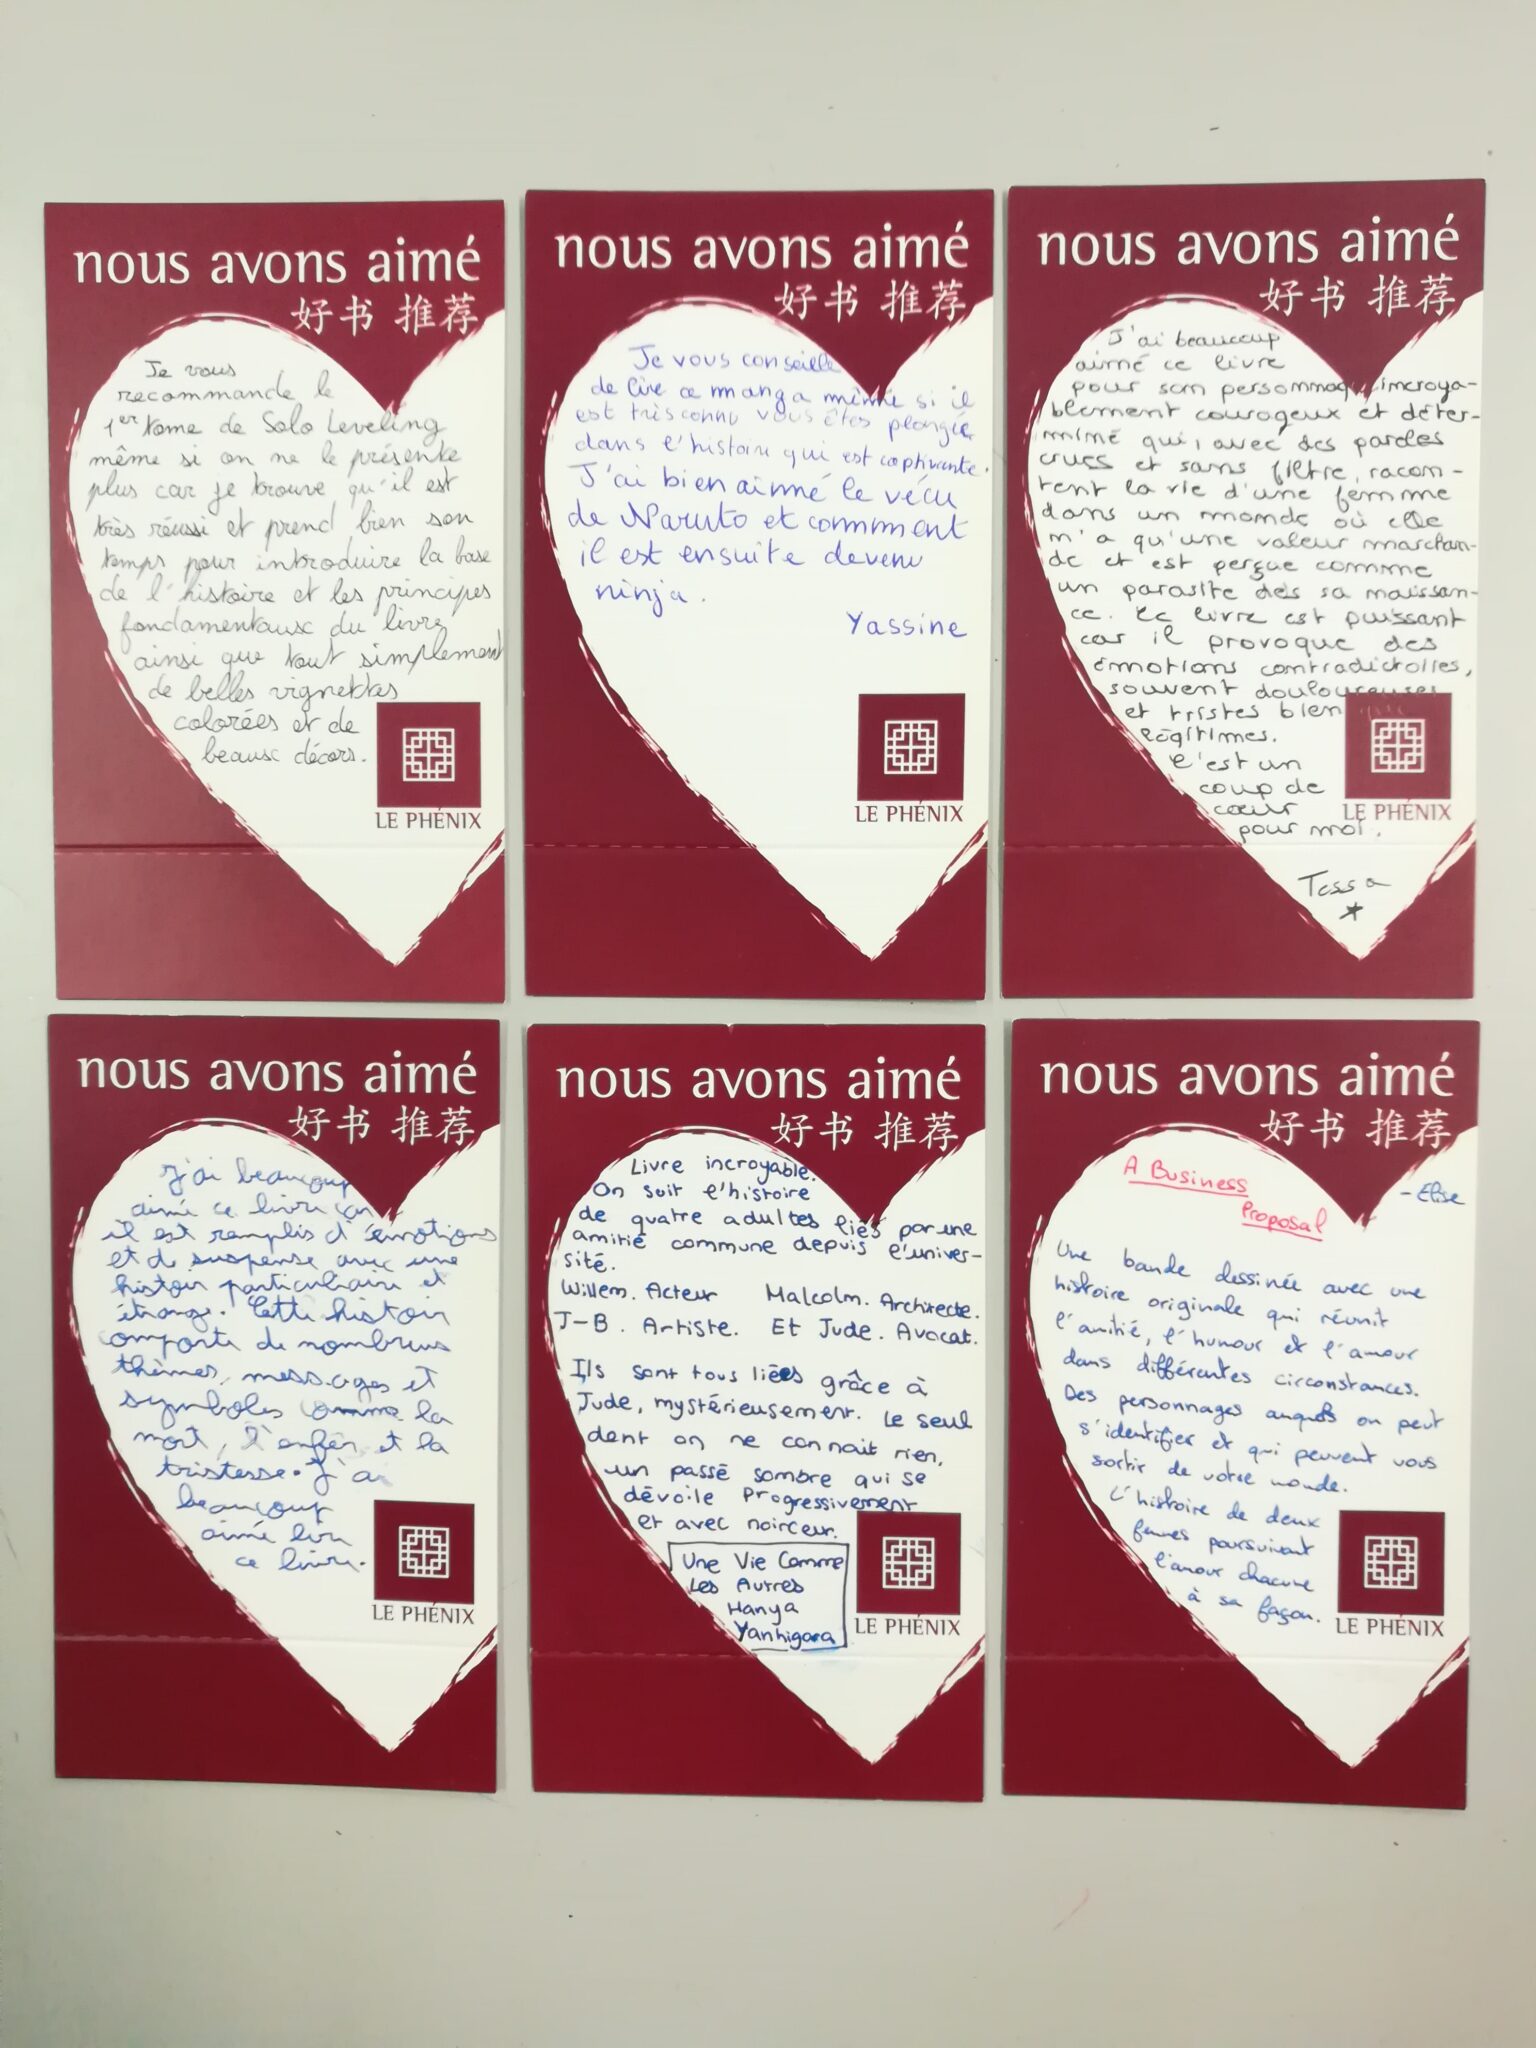 nous avons aimé
好书 推荐
Je vous
recommande le
1er tome de Solo Leveling
même si on ne le présente
plus car je trouve qu'il est
très réussi et prend bien son
temps pour introduire la base
de l'histoire et les principes
fondamentaux du livre
ainsi que tout simplement
de belles vignettes
colorées et de
beaux décors.
LE PHÉNIX
nous avons aimé
好书 推荐
Je vous conseille
de lire ce manga même si il
est très connu vous êtes plongée
dans l'histoire qui est captivante.
J'ai bien aimé le vécu
de Naruto et comment
il est ensuite devenu
ninja.
Yassine
LE PHÉNIX
nous avons aimé
好书 推荐
J'ai beaucoup
aimé ce livre
pour son personnage incroya-
blement courageux et déter-
miné qui, avec des paroles
crues et sans filtre, racon-
tent la vie d'une femme
dans un monde où elle
n'a qu'une valeur marchan-
de et est perçue comme
un parasite dès sa naissan-
ce. Ce livre est puissant
car il provoque des
émotions contradictoires,
souvent douloureuses
et tristes bien que
légitimes.
C'est un
coup de
cœur
pour moi.
LE PHÉNIX
Tessa
nous avons aimé
好书 推荐
J'ai beaucoup
aimé ce livre car
il est remplis d'émotions
et de suspense avec une
histoir particuliaire et
étrange. Cette histoir
comporte de nombreux
thèmes, messages et
symboles comme la
mort, l'enfer, et la
tristesse. J'ai
beaucoup
aimé lire
ce livre.
LE PHÉNIX
nous avons aimé
好书 推荐
Livre incroyable.
On suit l'histoire
de quatre adultes liés par une
amitié commune depuis l'univer-
sité.
Willem. Acteur Malcolm. Architecte.
J-B. Artiste. Et Jude. Avocat.
Ils sont tous liés grâce à
Jude, mystérieusement. Le seul
dont on ne connait rien,
un passé sombre qui se
dévoile progressivement
et avec noirceur.
Une Vie Comme
Les Autres
Hanya
Yanhigara
LE PHÉNIX
nous avons aimé
好书 推荐
A Business
Proposal
- Elise
Une bande dessinée avec une
histoire originale qui réunit
l'amitié, l'humour et l'amour
dans différentes circonstances.
Des personnages auquels on peut
s'identifier et qui peuvent vous
sortir de votre monde.
L'histoire de deux
femmes poursuivant
l'amour chacune
à sa façon.
LE PHÉNIX